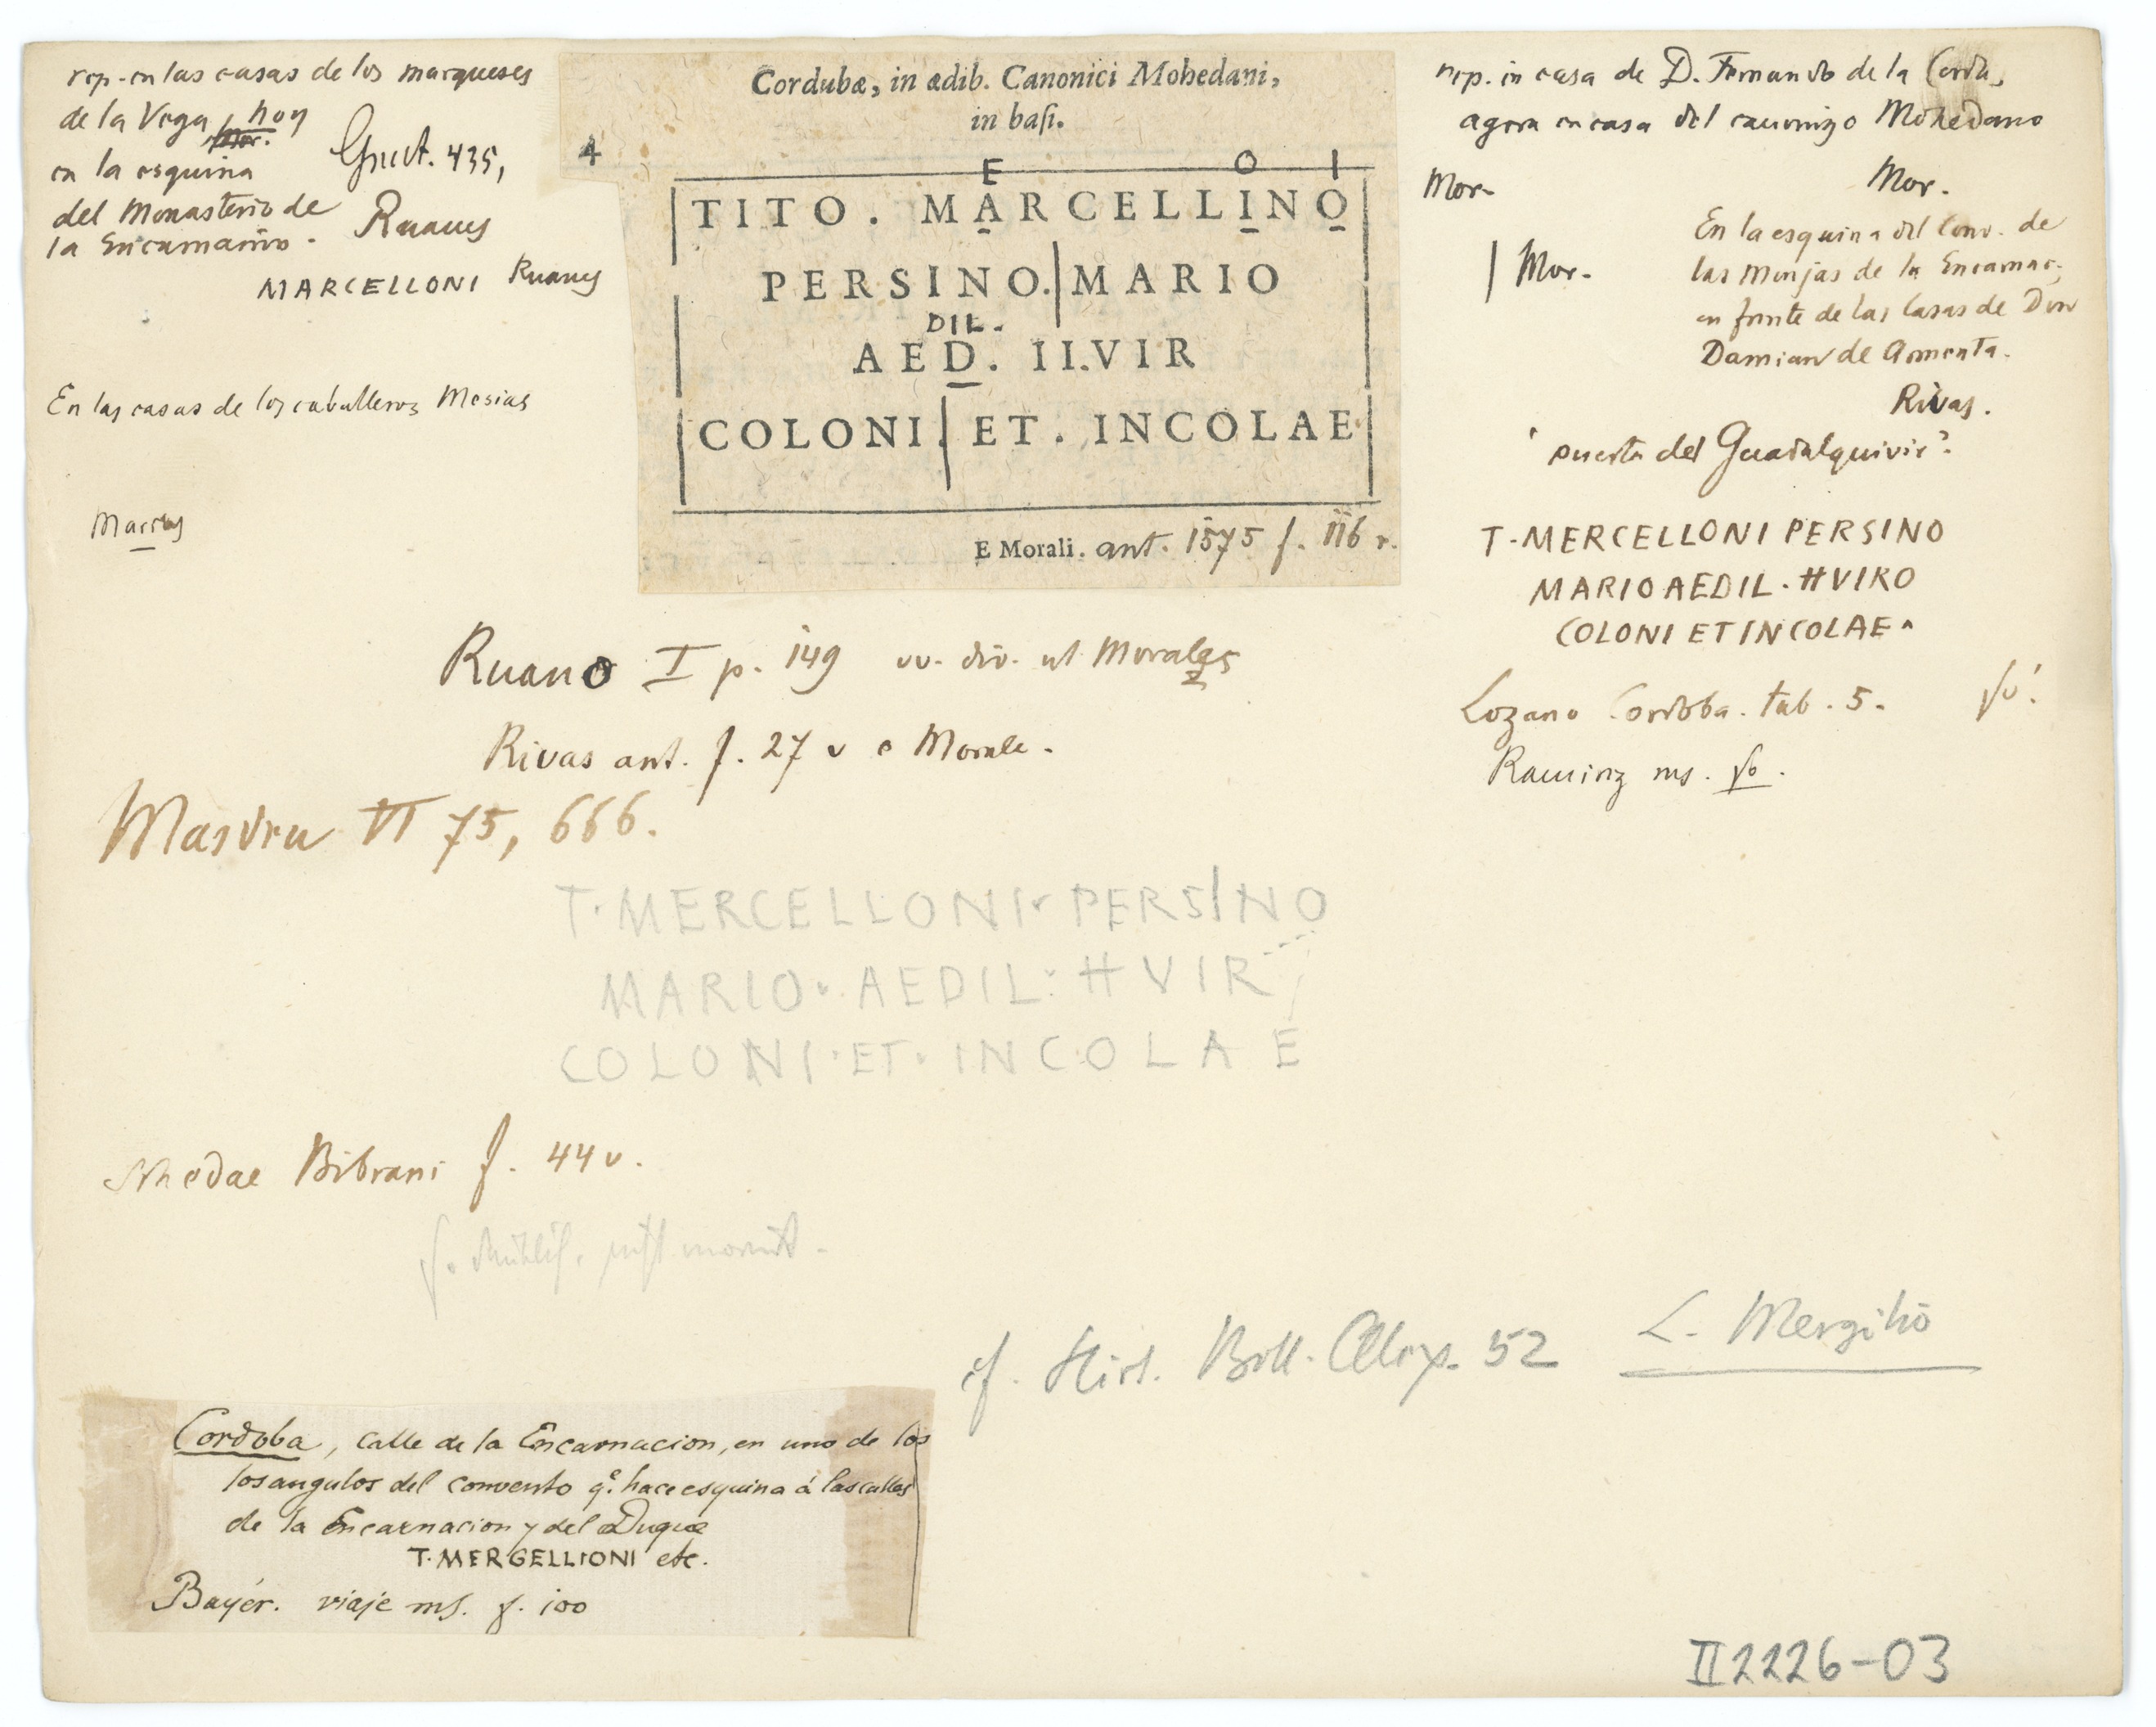 rep. en las casas de los marqueses
de la Vega, hoy
Mor.
en la esquina
del Monasterio de
la Encarnaño.
Grut. 435,
Ruanus
MARCELLONI Ruanus
En las casas de los caballeros Mesias
4
Cordubæ, in ædib. Canonici Mohedani,
in basi.
E O I
TITO. MARCELLINO
PERSINO. MARIO
DIL.
AED. II.VIR
COLONI. ET. INCOLAE
E Morali. ant. 1575 f. 116 r.
rep. en casa de D. Fernando de la Cerda,
agora en casa del canonigo Mohedano
Mor.
Mor.
| Mor.
En la esquina del Conv. de
las Monjas de la Encarnac.
en frente de las Casas de Don
Damian de Armenta.
Rivas.
'puerta del Guadalquivir'.
T. MERCELLONI PERSINO
MARIO AEDIL. IIVIRO
COLONI ET INCOLAE
Lozano Cordoba. tab. 5.
Ramirez ms.
Ruano I p. 149 vv. div. ut Morales
Rivas ant. f. 27 v e Morale.
Masdeu VI 75, 666.
T. MERCELLONI PERSINO
MARIO AEDIL IIVIR
COLONI ET INCOLAE
Schedae Bibrani f. 44 v.
cf. Hirs. Boll. 52 L. Mergilio
Cordoba, calle de la Encarnacion, en uno de los
los angulos del convento q.e hace esquina á las calles
de la Encarnacion y del Duque
T. MERGELLIONI etc.
Bayér. viaje ms. f. 100
II 2226-03